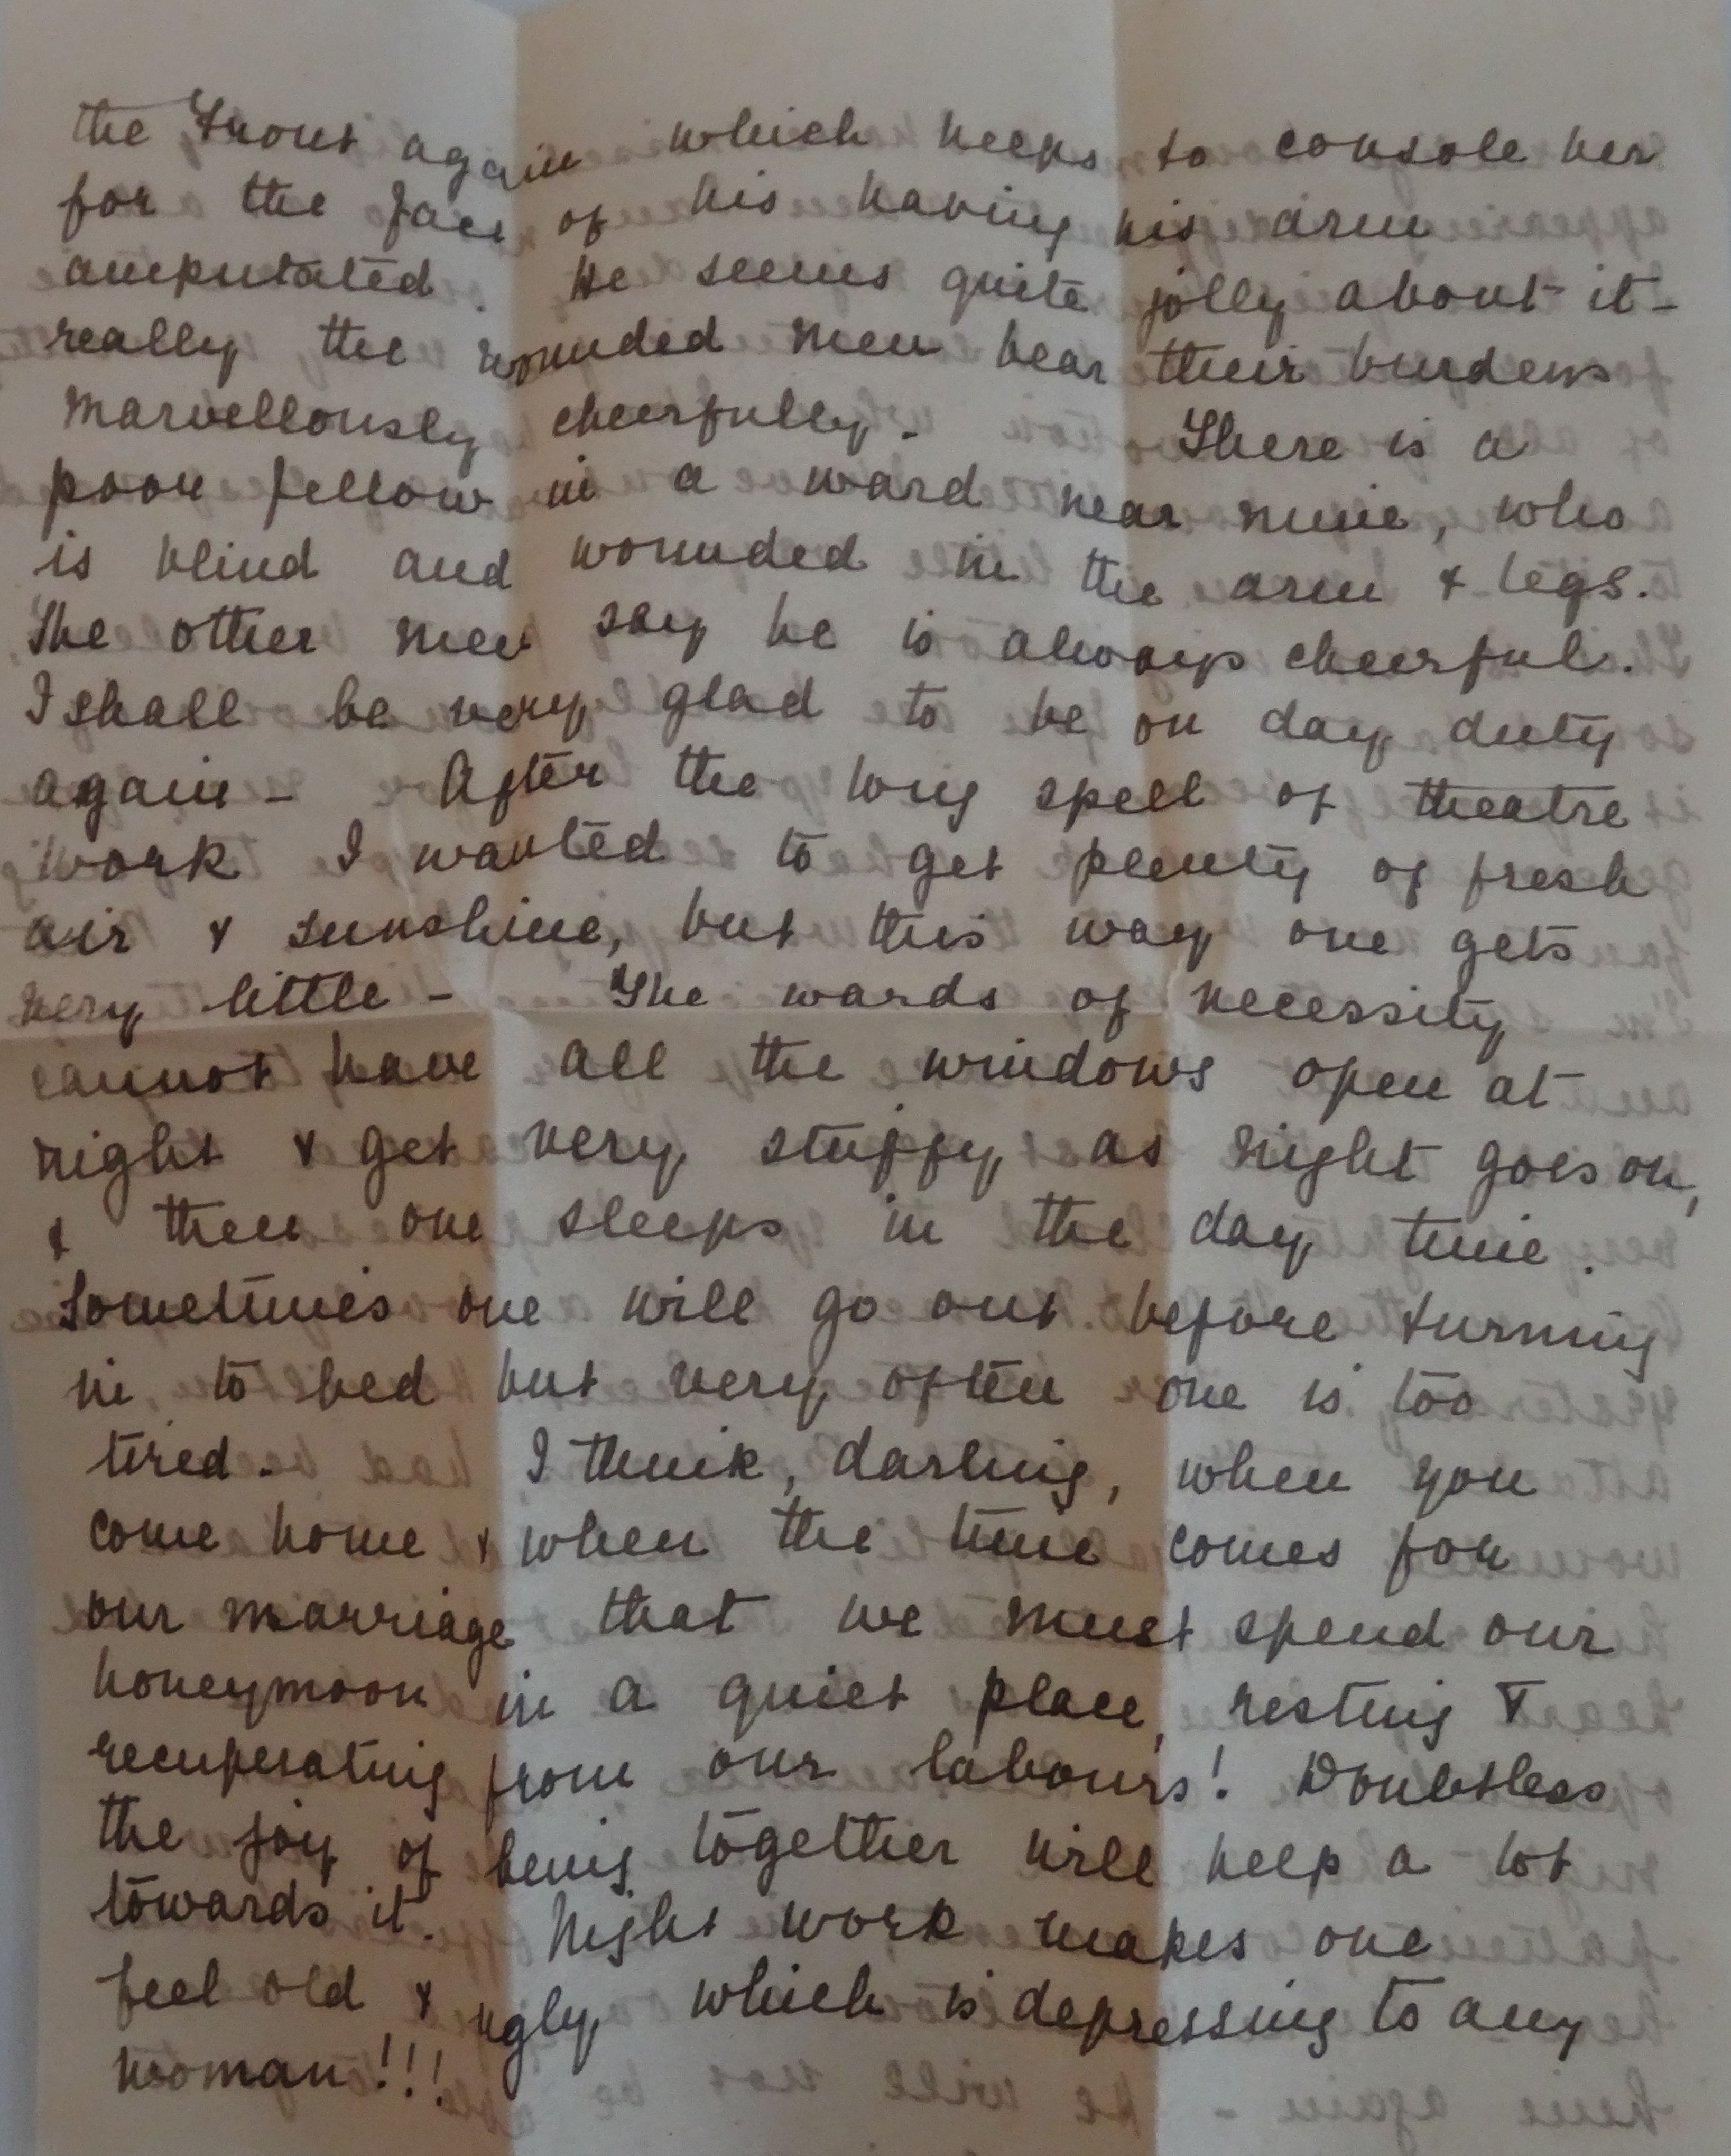 the front again which helps to console her
for the fact of his having his arm
amputated. He seems quite jolly about it -
really the wounded men bear their burdens
marvellously cheerfully. There is a
poor fellow in a ward near mine, who
is blind and wounded in the arm & legs.
The other men say he is always cheerful.
I shall be very glad to be on day duty
again - After the long spell of theatre
work I wanted to get plenty of fresh
air & sunshine, but this way one gets
very little - The wards of necessity
cannot have all the windows open at
night & get very stuffy as night goes on,
& then one sleeps in the day time.
Sometimes one will go out before turning
in to bed but very often one is too
tired. I think, darling, when you
come home & when the time comes for
our marriage that we must spend our
honeymoon in a quiet place, resting &
recuperating from our labours! Doubtless
the joy of being together will help a lot
towards it. Night work makes one
feel old & ugly, which is depressing to any
woman!!!